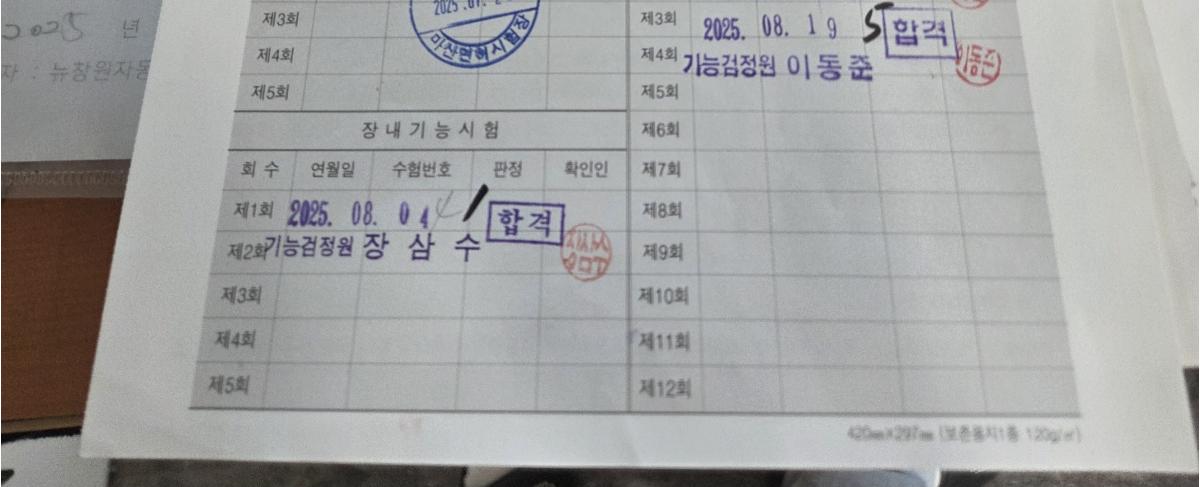 2025 년
자 : 뉴창원자동
제3회
2025.07.2
마산면허시험장
제4회
제5회
장내기능시험
회 수 연월일 수험번호 판정 확인인
제1회 2025. 08. 04 1 합격
제2회 기능검정원 장 삼 수
제3회
제4회
제5회
제3회 2025. 08. 19 5 합격
제4회 기능검정원 이동준 이동준
제5회
제6회
제7회
제8회
제9회
제10회
제11회
제12회
420㎜×297㎜ (보존용지1종 120g/㎡)